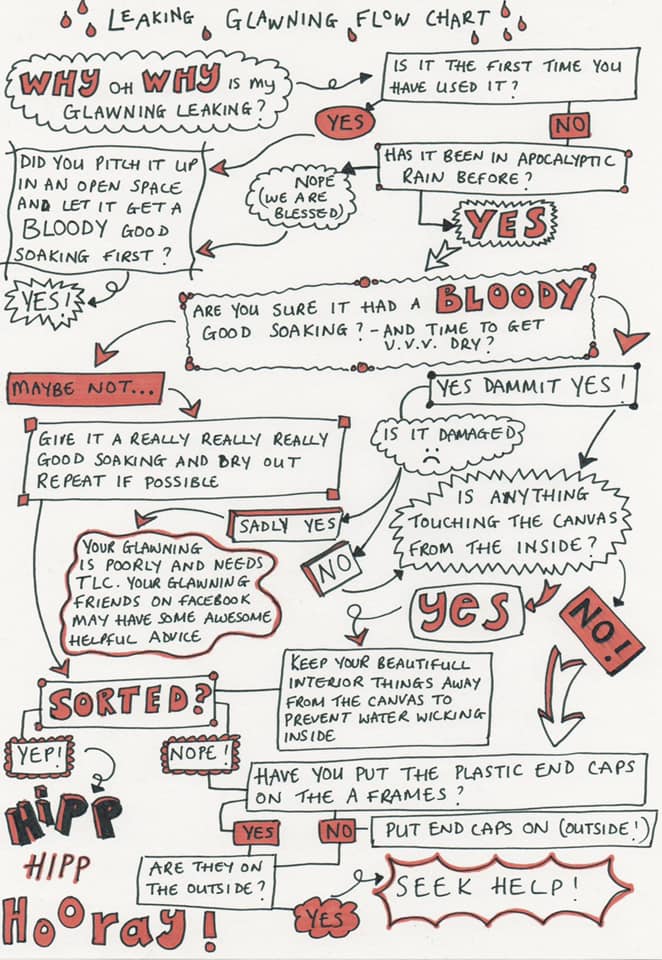 LEAKING GLAWNING FLOW CHART
WHY OH WHY IS my
GLAWNING LEAKING?
IS IT THE FIRST TIME YOU
HAVE USED IT?
YES
NO
DID YOU PITCH IT UP
IN AN OPEN SPACE
AND LET IT GET A
BLOODY GOOD
SOAKING FIRST?
NOPE
(WE ARE
BLESSED)
HAS IT BEEN IN APOCALYPTIC
RAIN BEFORE?
YES
YES!
ARE YOU SURE IT HAD A BLOODY
GOOD SOAKING? - AND TIME TO GET
V.V.V. DRY?
MAYBE NOT...
YES DAMMIT YES!
GIVE IT A REALLY REALLY REALLY
GOOD SOAKING AND DRY OUT
REPEAT IF POSSIBLE
IS IT DAMAGED
IS ANYTHING
TOUCHING THE CANVAS
FROM THE INSIDE?
SADLY YES
NO
YOUR GLAWNING
IS POORLY AND NEEDS
TLC. YOUR GLAWNING
FRIENDS ON FACEBOOK
MAY HAVE SOME AWESOME
HELPFUL ADVICE
yes
NO!
KEEP YOUR BEAUTIFULL
INTERIOR THINGS AWAY
FROM THE CANVAS TO
PREVENT WATER WICKING
INSIDE
SORTED?
YEP!
NOPE!
HAVE YOU PUT THE PLASTIC END CAPS
ON THE A FRAMES?
HiPP
HIPP
Hooray!
YES
NO
PUT END CAPS ON (OUTSIDE!)
ARE THEY ON
THE OUTSIDE?
YES
SEEK HELP!